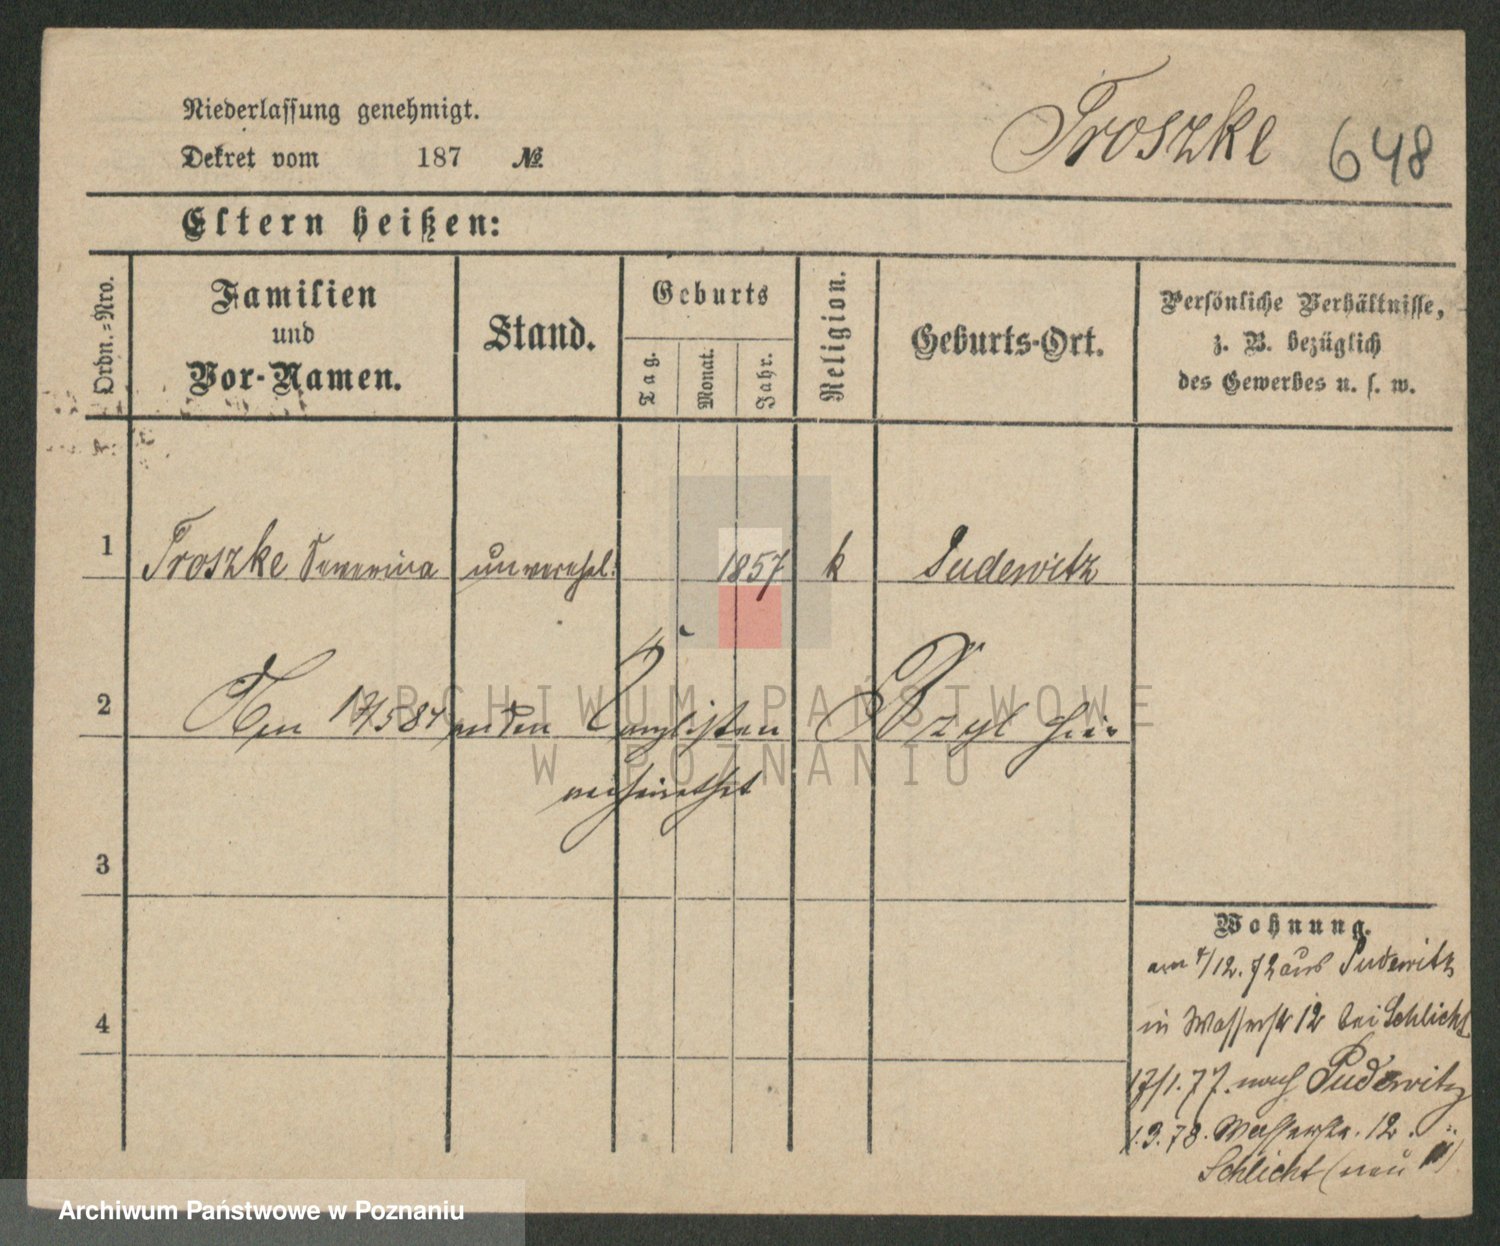 Niederlassung genehmigt.
Dekret vom 187 №
Troszke 648
Eltern heißen:
Ordn.-Nro.
Familien
und
Vor-Namen.
Stand.
Geburts
Tag.
Monat.
Jahr.
Religion.
Geburts-Ort.
Persönliche Verhältnisse,
z. B. bezüglich
des Gewerbes u. s. w.
1 Troszke Severina unverehel. 1857 k Pudewitz
2 Am 17/5 84 an den hier
verheirathet
3
4
Wohnung.
am 4/12. 72 aus Pudewitz
in Wasserstr 12 bei Schlicht
17/1. 77. nach Pudewitz
1.3.78. Wasserstr. 12.
Schlicht (neu
ARCHIWUM PAŃSTWOWE
W POZNANIU
Archiwum Państwowe w Poznaniu